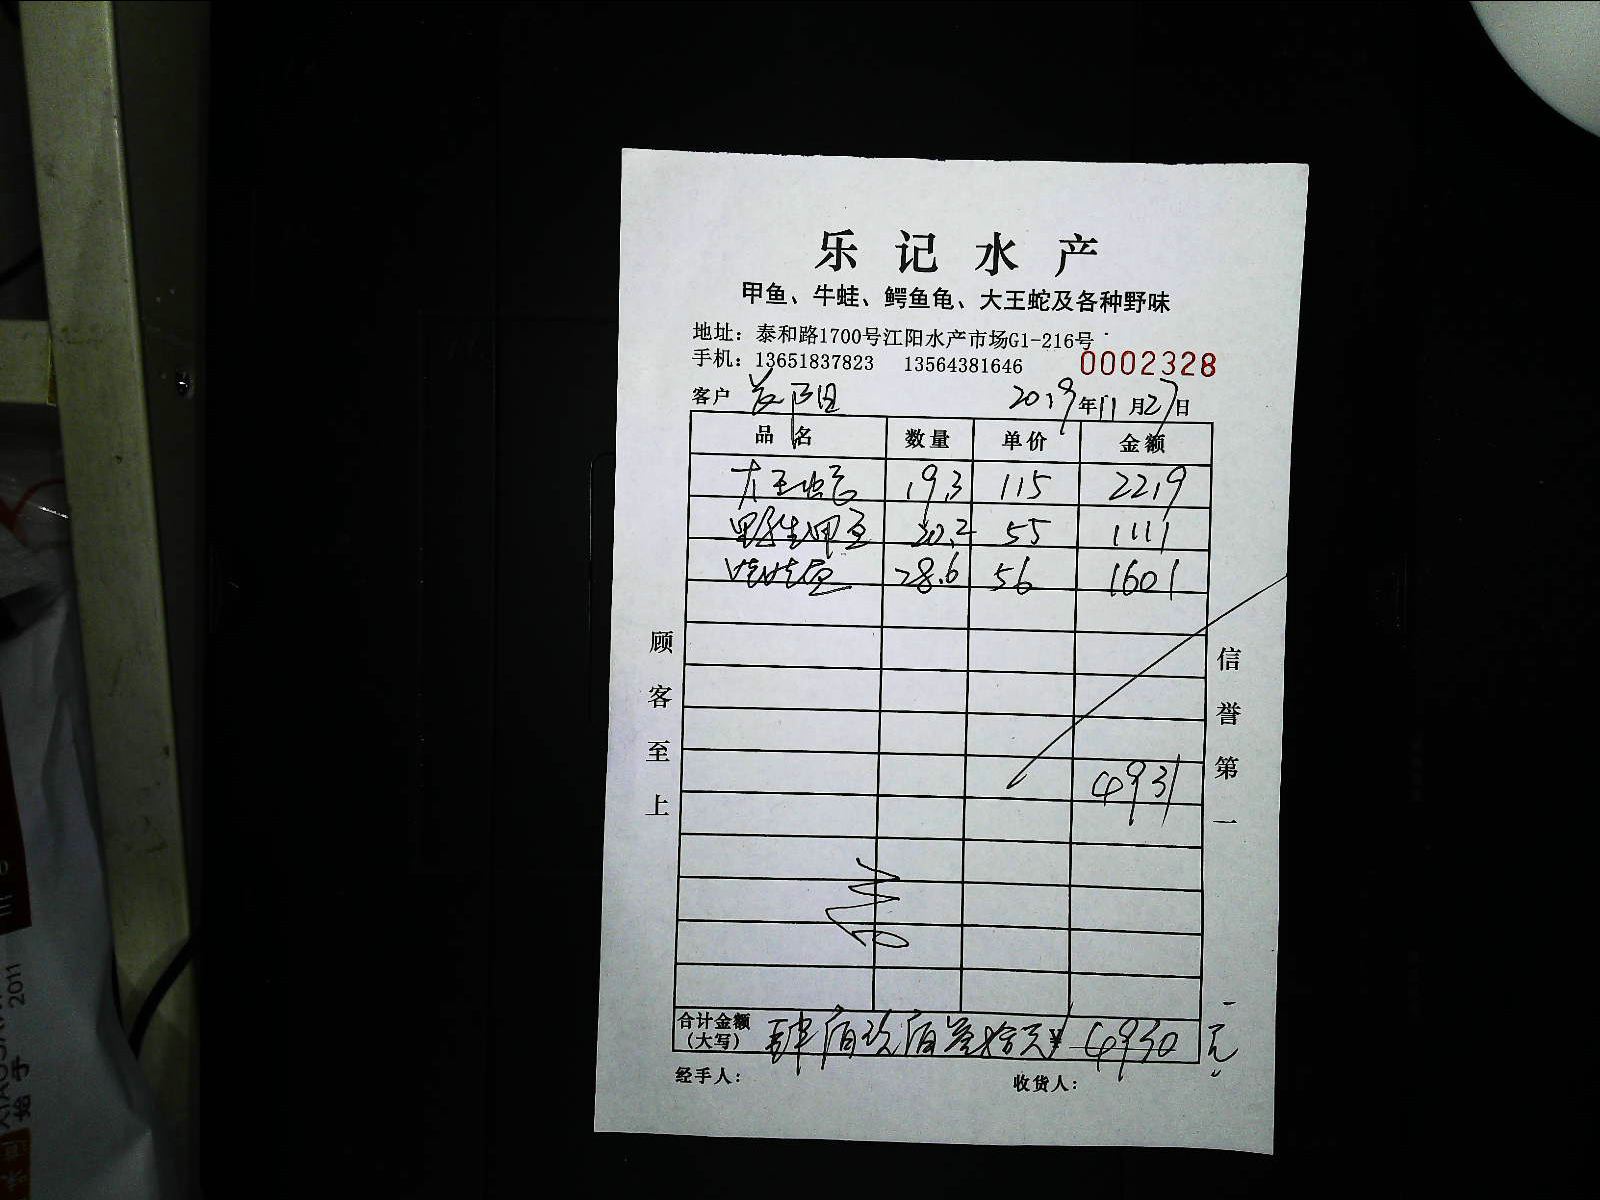 乐记水产
甲鱼、牛蛙、鳄鱼龟、大王蛇及各种野味
地址：泰和路1700号江阳水产市场G1-216号
手机：13651837823 13564381646 0002328
客户 2019年11月27日
品名 数量 单价 金额
大王蛇 19.3 115 2219
野生甲鱼 20.2 55 1111
娃娃鱼 28.6 56 1601
4931
顾客至上
信誉第一
合计金额
(大写) 肆佰玖佰叁拾元 ¥4930元
经手人： 收货人：
2011